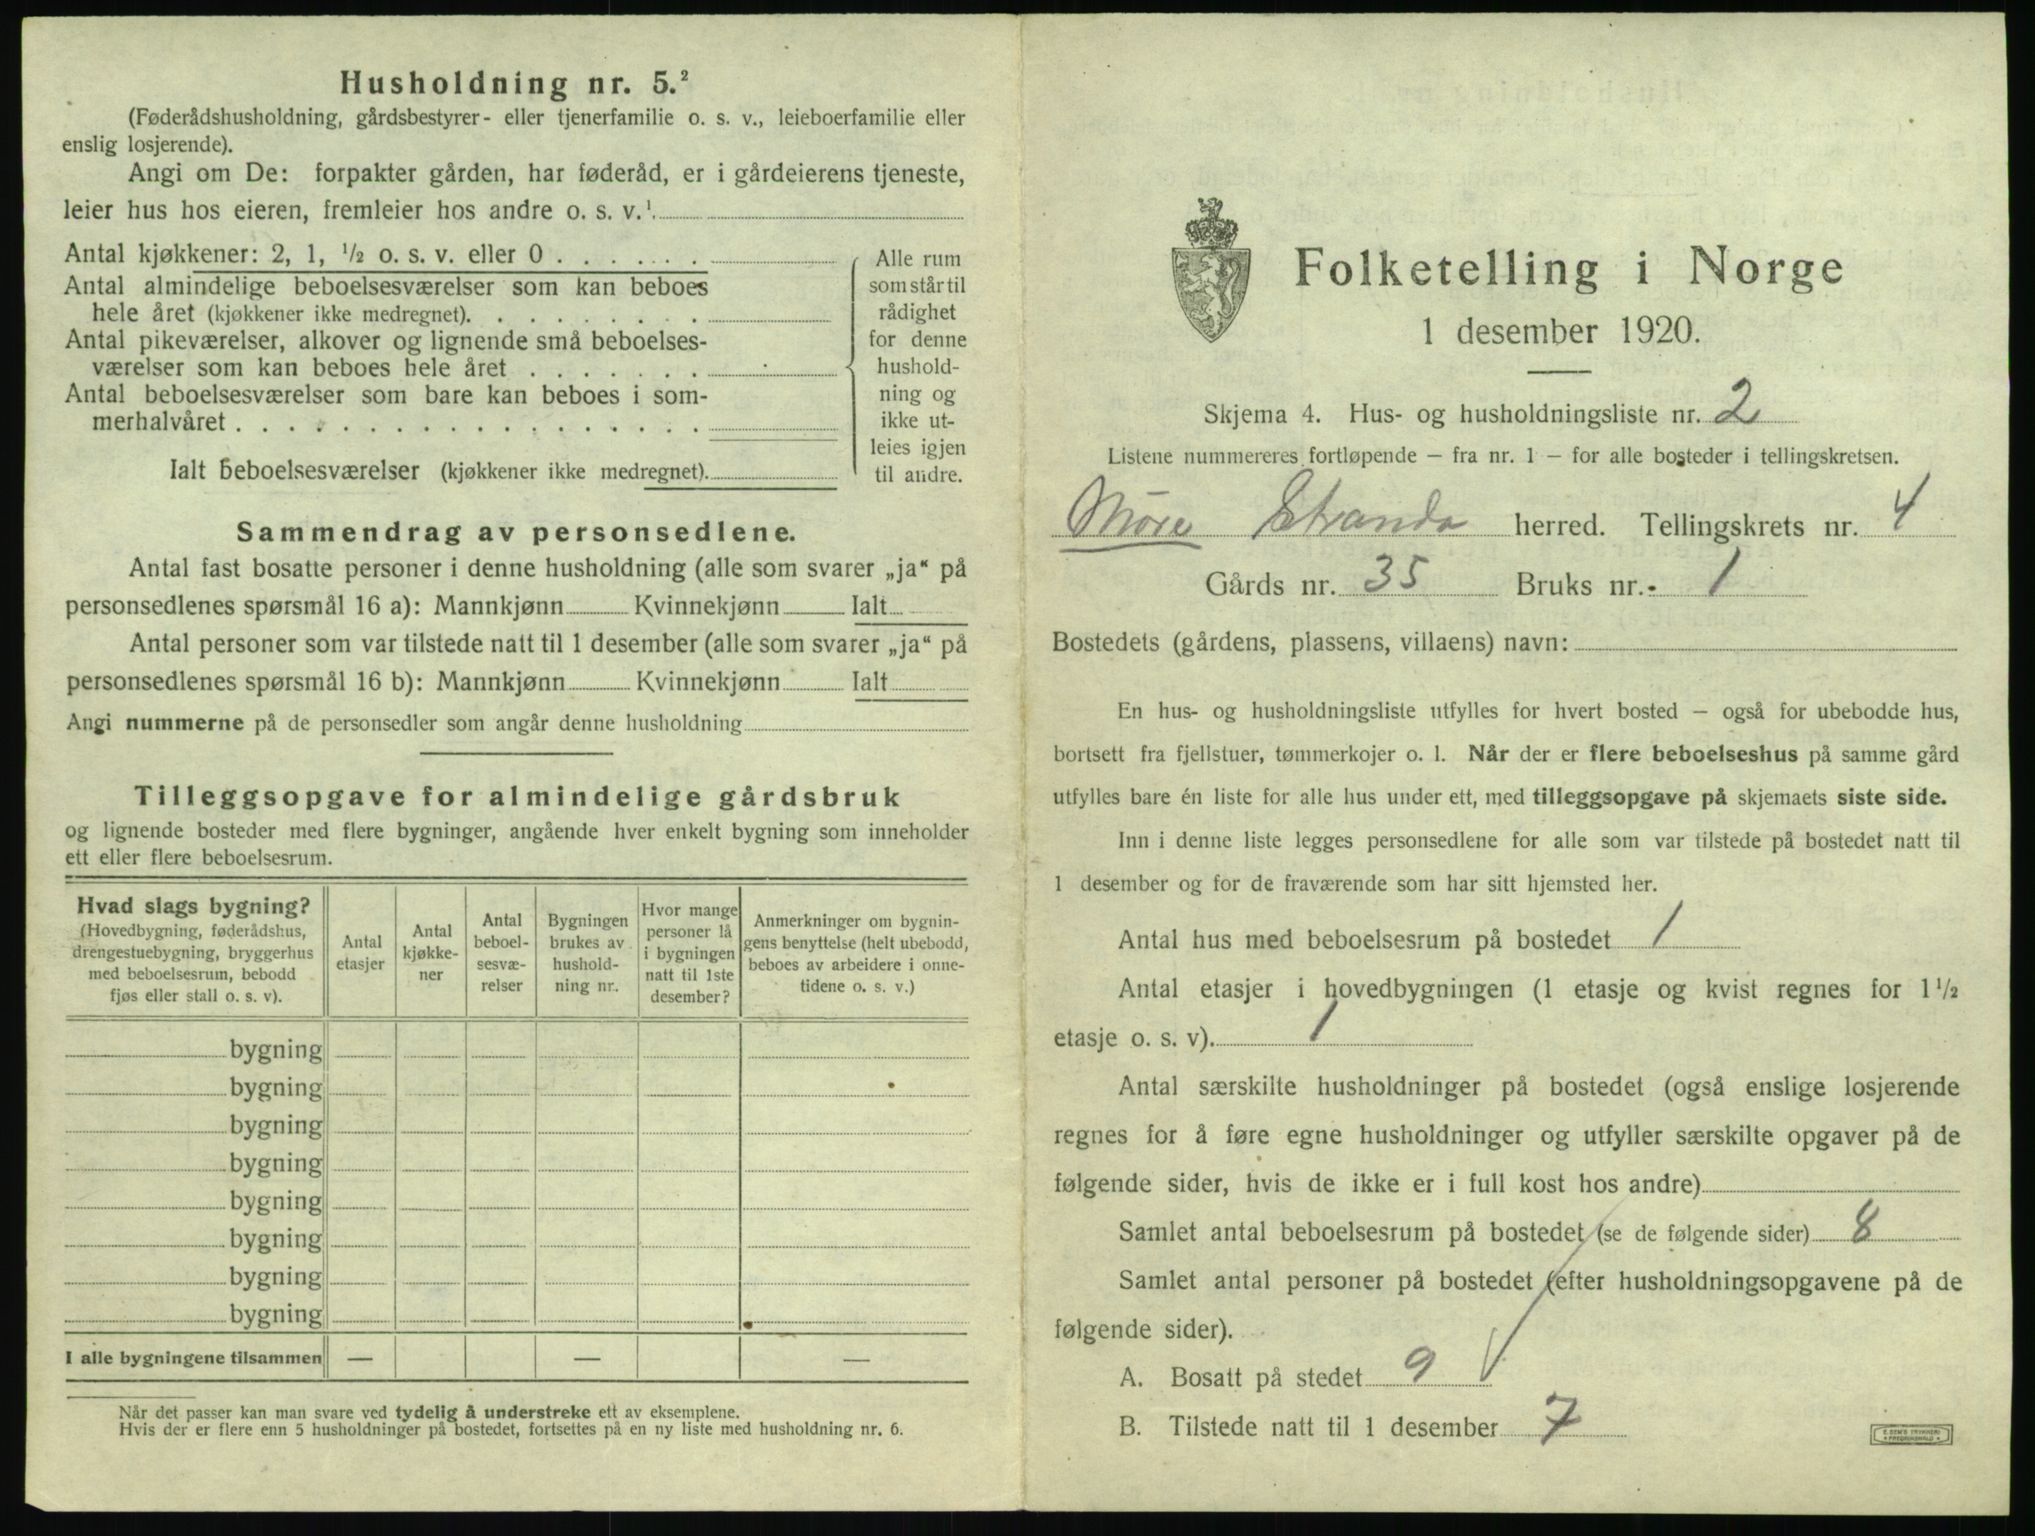 Husholdning nr. 5.²
(Føderådshusholdning, gårdsbestyrer- eller tjenerfamilie o. s. v., leieboerfamilie eller
enslig losjerende).
Angi om De: forpakter gården, har føderåd, er i gårdeierens tjeneste,
leier hus hos eieren, fremleier hos andre o. s. v.¹
Antal kjøkkener: 2, 1, ½ o. s. v. eller 0 . . . . . .
Antal almindelige beboelsesværelser som kan beboes
hele året (kjøkkener ikke medregnet). . . . . . . . .
Antal pikeværelser, alkover og lignende små beboelses-
værelser som kan beboes hele året . . . . . . .
Antal beboelsesværelser som bare kan beboes i som-
merhalvåret . . . . . . . . . . . . . . . . . .
Ialt beboelsesværelser (kjøkkener ikke medregnet).
Alle rum
som står til
rådighet
for denne
hushold-
ning og
ikke ut-
leies igjen
til andre.
Sammendrag av personsedlene.
Antal fast bosatte personer i denne husholdning (alle som svarer „ja“ på
personsedlenes spørsmål 16 a): Mannkjønn Kvinnekjønn Ialt
Antal personer som var tilstede natt til 1 desember (alle som svarer „ja“ på
personsedlenes spørsmål 16 b): Mannkjønn Kvinnekjønn Ialt
Angi nummerne på de personsedler som angår denne husholdning
Tilleggsopgave for almindelige gårdsbruk
og lignende bosteder med flere bygninger, angående hver enkelt bygning som inneholder
ett eller flere beboelsesrum.
Hvad slags bygning?
(Hovedbygning, føderådshus,
drengestuebygning, bryggerhus
med beboelsesrum, bebodd
fjøs eller stall o. s. v).
Antal
etasjer
Antal
kjøkke-
ner
Antal
beboel-
sesvæ-
relser
Bygningen
brukes av
hushold-
ning nr.
Hvor mange
personer lå
i bygningen
natt til 1ste
desember?
Anmerkninger om bygnin-
gens benyttelse (helt ubebodd,
beboes av arbeidere i onne-
tidene o. s. v.)
bygning
bygning
bygning
bygning
bygning
bygning
bygning
bygning
I alle bygningene tilsammen — — —
Når det passer kan man svare ved tydelig å understreke ett av eksemplene.
Hvis der er flere enn 5 husholdninger på bostedet, fortsettes på en ny liste med husholdning nr. 6.
Folketelling i Norge
1 desember 1920.
Skjema 4. Hus- og husholdningsliste nr. 2
Listene nummereres fortløpende — fra nr. 1 — for alle bosteder i tellingskretsen.
Møre Stranda herred. Tellingskrets nr. 4
Gårds nr. 35 Bruks nr. 1
Bostedets (gårdens, plassens, villaens) navn:
En hus- og husholdningsliste utfylles for hvert bosted — også for ubebodde hus,
bortsett fra fjellstuer, tømmerkojer o. l. Når der er flere beboelseshus på samme gård
utfylles bare én liste for alle hus under ett, med tilleggsopgave på skjemaets siste side.
Inn i denne liste legges personsedlene for alle som var tilstede på bostedet natt til
1 desember og for de fraværende som har sitt hjemsted her.
Antal hus med beboelsesrum på bostedet 1
Antal etasjer i hovedbygningen (1 etasje og kvist regnes for 1½
etasje o. s. v). 1
Antal særskilte husholdninger på bostedet (også enslige losjerende
regnes for å føre egne husholdninger og utfyller særskilte opgaver på de
følgende sider, hvis de ikke er i full kost hos andre)
Samlet antal beboelsesrum på bostedet (se de følgende sider) 8
Samlet antal personer på bostedet (efter husholdningsopgavene på de
følgende sider).
A. Bosatt på stedet 9
B. Tilstede natt til 1 desember 7